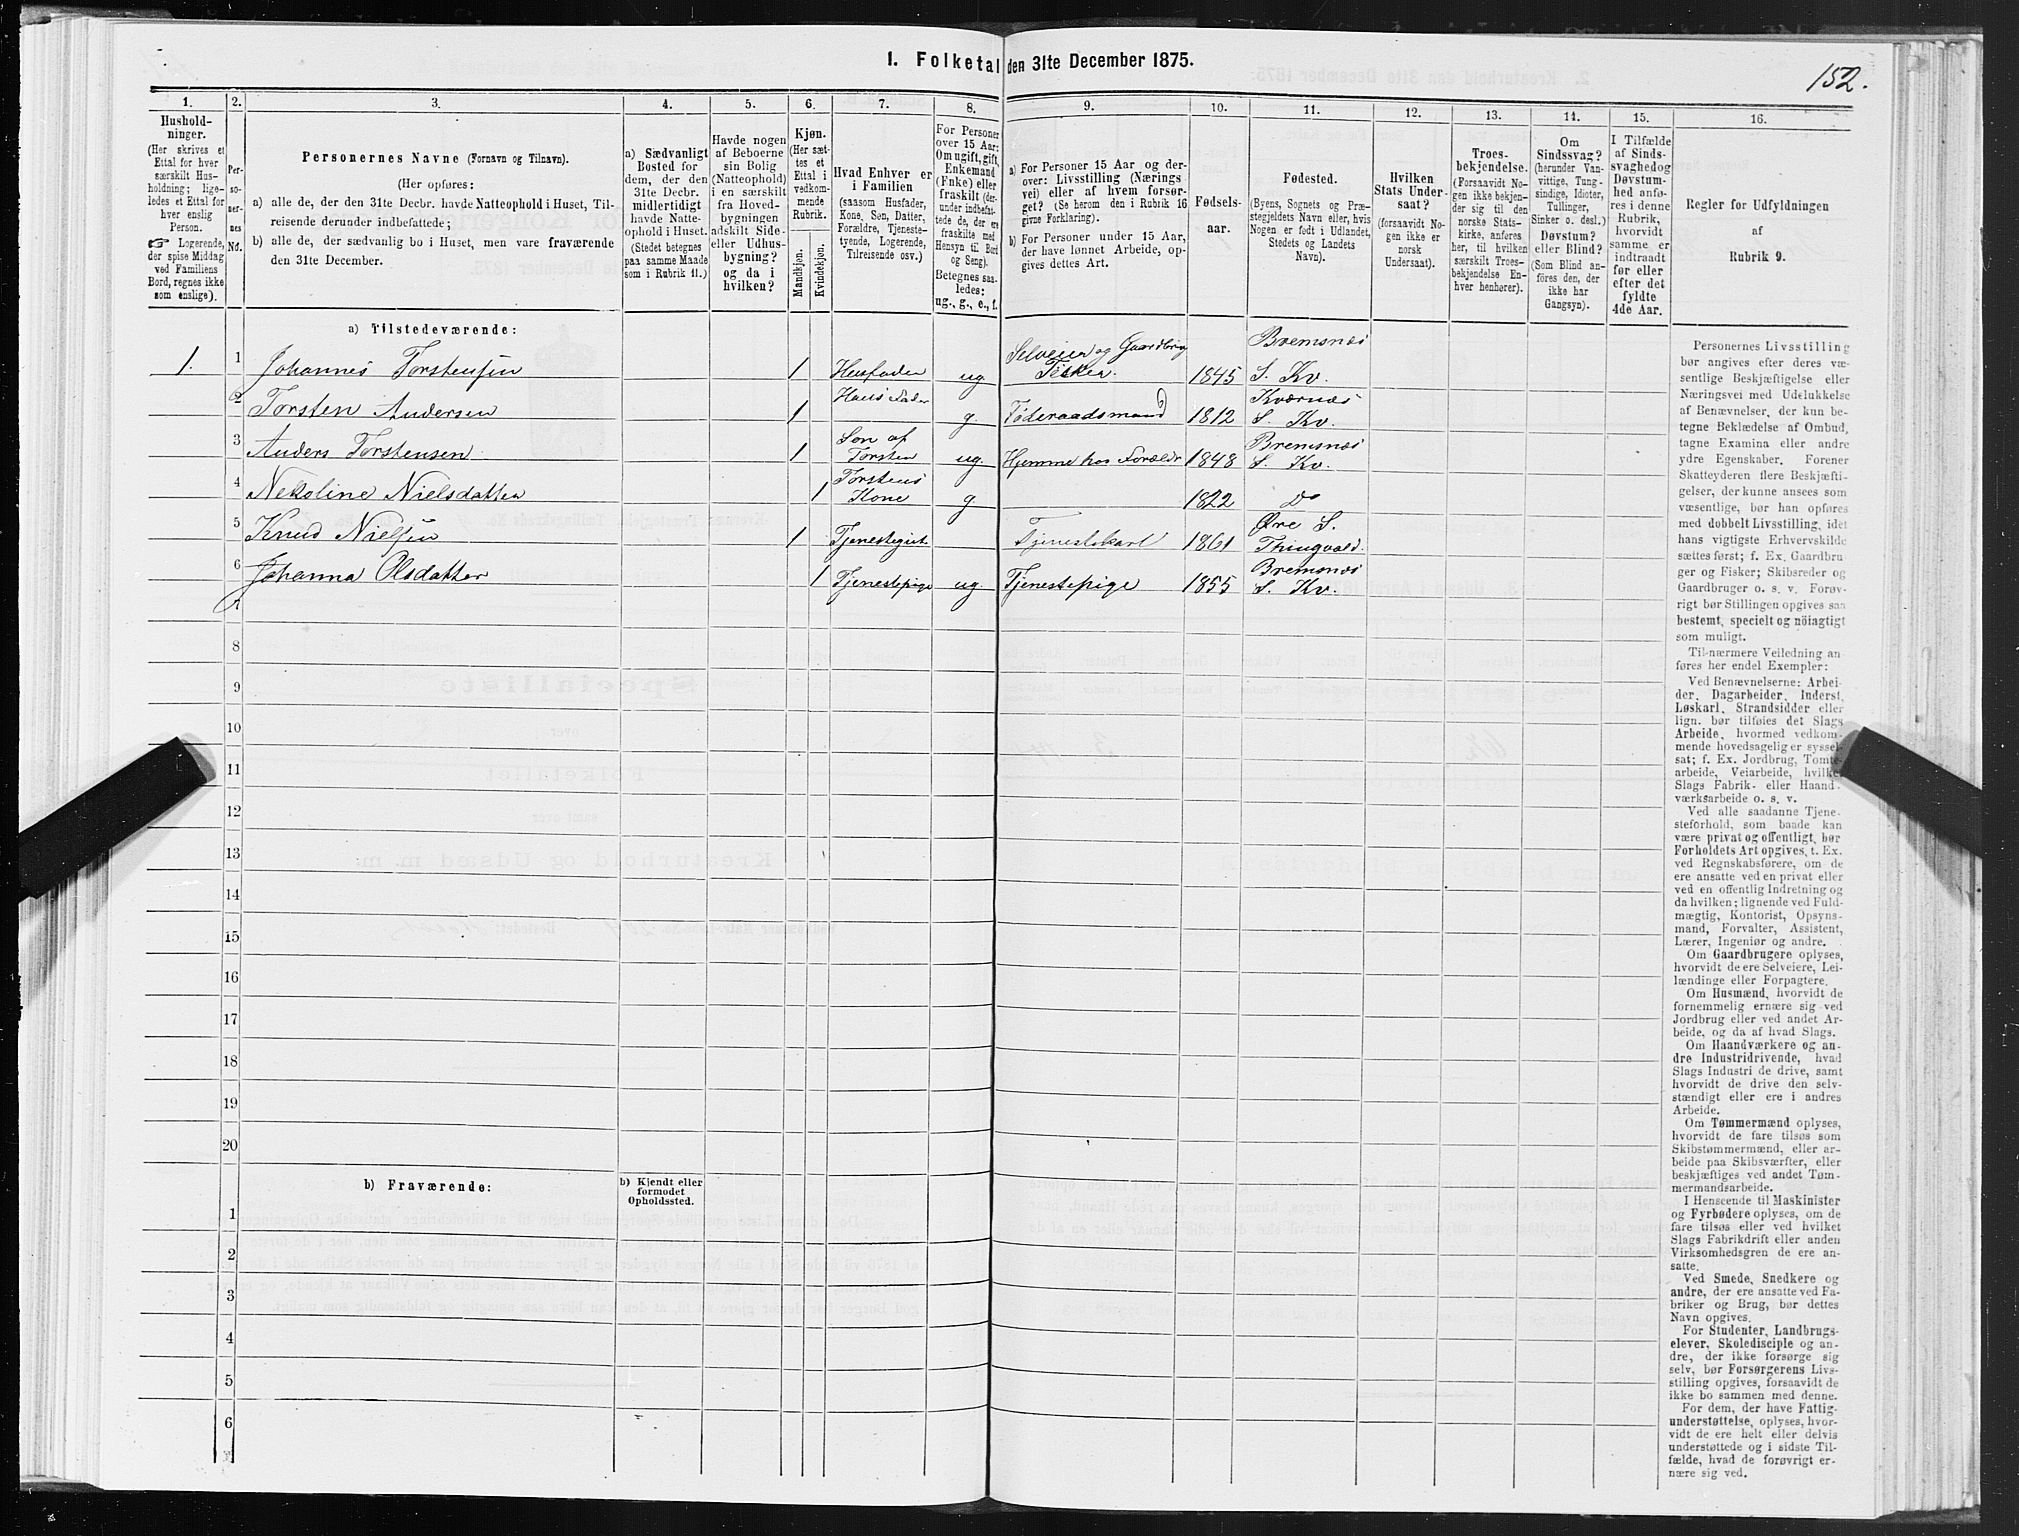 1. Folketal den 31te December 1875.
152.
1.
2.
3.
4.
5.
6.
7.
8.
9.
10.
11.
12.
13.
14.
15.
16.
Hushold-
ninger.
(Her skrives et
Ettal for hver
særskilt Hus-
holdning; lige-
ledes et Ettal for
hver enslig
Person.
☞ Logerende,
der spise Middag
ved Familiens
Bord, regnes ikke
som enslige).
Per-
so-
ner-
nes
No.
Personernes Navne (Fornavn og Tilnavn).
(Her opføres:
a) alle de, der den 31te Decbr. havde Natteophold i Huset, Til-
reisende derunder indbefattede;
b) alle de, der sædvanlig bo i Huset, men vare fraværende
den 31te December.
a) Sædvanligt
Bosted for
dem, der den
31te Decbr.
midlertidigt
havde Natte-
ophold i Huset.
(Stedet betegnes
paa samme Maade
som i Rubrik 11.)
Havde nogen
af Beboerne
sin Bolig
(Natteophold)
i en særskilt
fra Hoved-
bygningen
adskilt Side-
eller Udhus-
bygning?
og da i
hvilken?
Kjøn.
(Her sæt-
tes et
Ettal i
vedkom-
mende
Rubrik.
Mandkjøn.
Kvindekjøn.
Hvad Enhver er
i Familien
(saasom Husfader,
Kone, Søn, Datter,
Forældre, Tjeneste-
tyende, Logerende,
Tilreisende osv.)
For Personer
over 15 Aar:
Om ugift, gift,
Enkemand
(Enke) eller
fraskilt (der-
under indbefat-
tede de, der ere
fraskilte med
Hensyn til Bord
og Seng).
Betegnes saa-
ledes:
ug., g., e., f.
a) For Personer 15 Aar og der-
over: Livsstilling (Nærings-
vei) eller af hvem forsør-
get? (Se herom den i Rubrik 16
givne Forklaring).
b) For Personer under 15 Aar,
der have lønnet Arbeide, op-
gives dettes Art.
Fødsels-
aar.
Fødested.
(Byens, Sognets og Præ-
stegjeldets Navn eller, hvis
Nogen er født i Udlandet,
Stedets og Landets
Navn).
Hvilken
Stats Under-
saat?
(forsaavidt No-
gen ikke er
norsk
Undersaat).
Troes-
bekjendelse.
(Forsaavidt No-
gen ikke bekjen-
der sig til den
norske Stats-
kirke, anføres
her, til hvilken
særskilt Troes-
bekjendelse En-
hver henhører).
Om
Sindssvag?
(herunder Van-
vittige, Tung-
sindige, Idioter,
Tullinger,
Sinker o. desl.)
Døvstum?
eller Blind?
(Som Blind an-
føres den, der
ikke har
Gangsyn).
I Tilfælde
af Sinds-
svaghed og
Døvstum-
hed anfø-
res i denne
Rubrik,
hvorvidt
samme er
indtraadt
før eller
efter det
fyldte
4de Aar.
Regler for Udfyldningen
af
Rubrik 9.
a) Tilstedeværende:
1. 1 Johannes Torstensen 1 Husfader ug. Selveier og Gaardbrug Fisker. 1845 Bremsnæs S. Kv.
2 Torsten Andersen 1 Huus Fader g. Føderaadsmand 1812 Kværnæs S. Kv.
3 Anders Torstensen 1 Søn af Torsten ug. Hjemme hos Forældr 1848 Bremsnæs S. Kv.
4 Nekoline Nielsdatter 1 Torstens Kone g. 1822 do
5 Knud Nielsen 1 Tjenestegut Tjenestekarl 1861 Øre S. Thingvold.
6 Johanna Olsdatter 1 Tjenestepige ug. Tjenestepige 1855 Bremsnæs S. Kv.
7
8
9
10
11
12
13
14
15
16
17
18
19
20
b) Fraværende:
b) Kjendt eller
formodet
Opholdssted.
1
2
3
4
5
6
Personernes Livsstilling
bør angives efter deres væ-
sentlige Beskjæftigelse eller
Næringsvei med Udelukkelse
af Benævnelser, der kun be-
tegne Beklædelse af Ombud,
tagne Examina eller andre
ydre Egenskaber. Forener
Skatteyderen flere Beskjæfti-
gelser, der kunne ansees som
væsentlige, bør han opføres
med dobbelt Livsstilling, idet
hans vigtigste Erhvervskilde
sættes først; f. Ex. Gaardbru-
ger og Fisker; Skibsreder og
Gaardbruger o. s. v. Forøv-
rigt bør Stillingen opgives saa
bestemt, specielt og nöiagtigt
som muligt.
Til nærmere Veiledning an-
føres her endel Exempler:
Ved Benævnelserne: Arbei-
der, Dagarbeider, Inderst,
Løskarl, Strandsidder eller
lign. bør tilføies det Slags
Arbeide, hvormed vedkom-
mende hovedsagelig er syssel-
sat; f. Ex. Jordbrug, Tomte-
arbeide, Veiarbeide, hvilket
Slags Fabrik- eller Haand-
værksarbeide o. s. v.
Ved alle saadanne Tjene-
steforhold, som baade kan
være privat og offentligt, bør
Forholdets Art opgives, t. Ex.
ved Regnskabsførere, om de
ere ansatte ved en privat eller
ved en offentlig Indretning og
da hvilken; lignende ved Fuld-
mægtig, Kontorist, Opsyns-
mand, Forvalter, Assistent,
Lærer, Ingeniør og andre.
Om Gaardbrugere oplyses,
hvorvidt de ere Selveiere, Lei-
lændinge eller Forpagtere.
Om Husmænd, hvorvidt de
fornemmelig ernære sig ved
Jordbrug eller ved andet Ar-
beide, og da af hvad Slags.
Om Haandværkere og an-
dre Industridrivende, hvad
Slags Industri de drive, samt
hvorvidt de drive den selv-
stændigt eller ere i andres
Arbeide.
Om Tømmermænd oplyses,
hvorvidt de fare tilsøs som
Skibstømmermænd, eller ar-
beide paa Skibsværfter, eller
beskjæftiges ved andet Tøm-
mermandsarbeide.
I Henseende til Maskinister
og Fyrbødere oplyses, om de
fare tilsøs eller ved hvilket
Slags Fabrikdrift eller anden
Virksomhedsgren de ere an-
satte.
Ved Smede, Snedkere og
andre, der ere ansatte ved Fa-
briker og Brug, bør dettes
Navn opgives.
For Studenter, Landbrugs-
elever, Skoledisciple og an-
dre, der ikke forsørge sig
selv, bør Forsørgerens Livs-
stilling opgives, forsaavidt de
ikke bo sammen med denne.
For dem, der have Fattig-
understøttelse, oplyses, hvor-
vidt de ere helt eller delvis
understøttede og i sidste Til-
fælde, hvad de forøvrigt er-
nære sig ved.